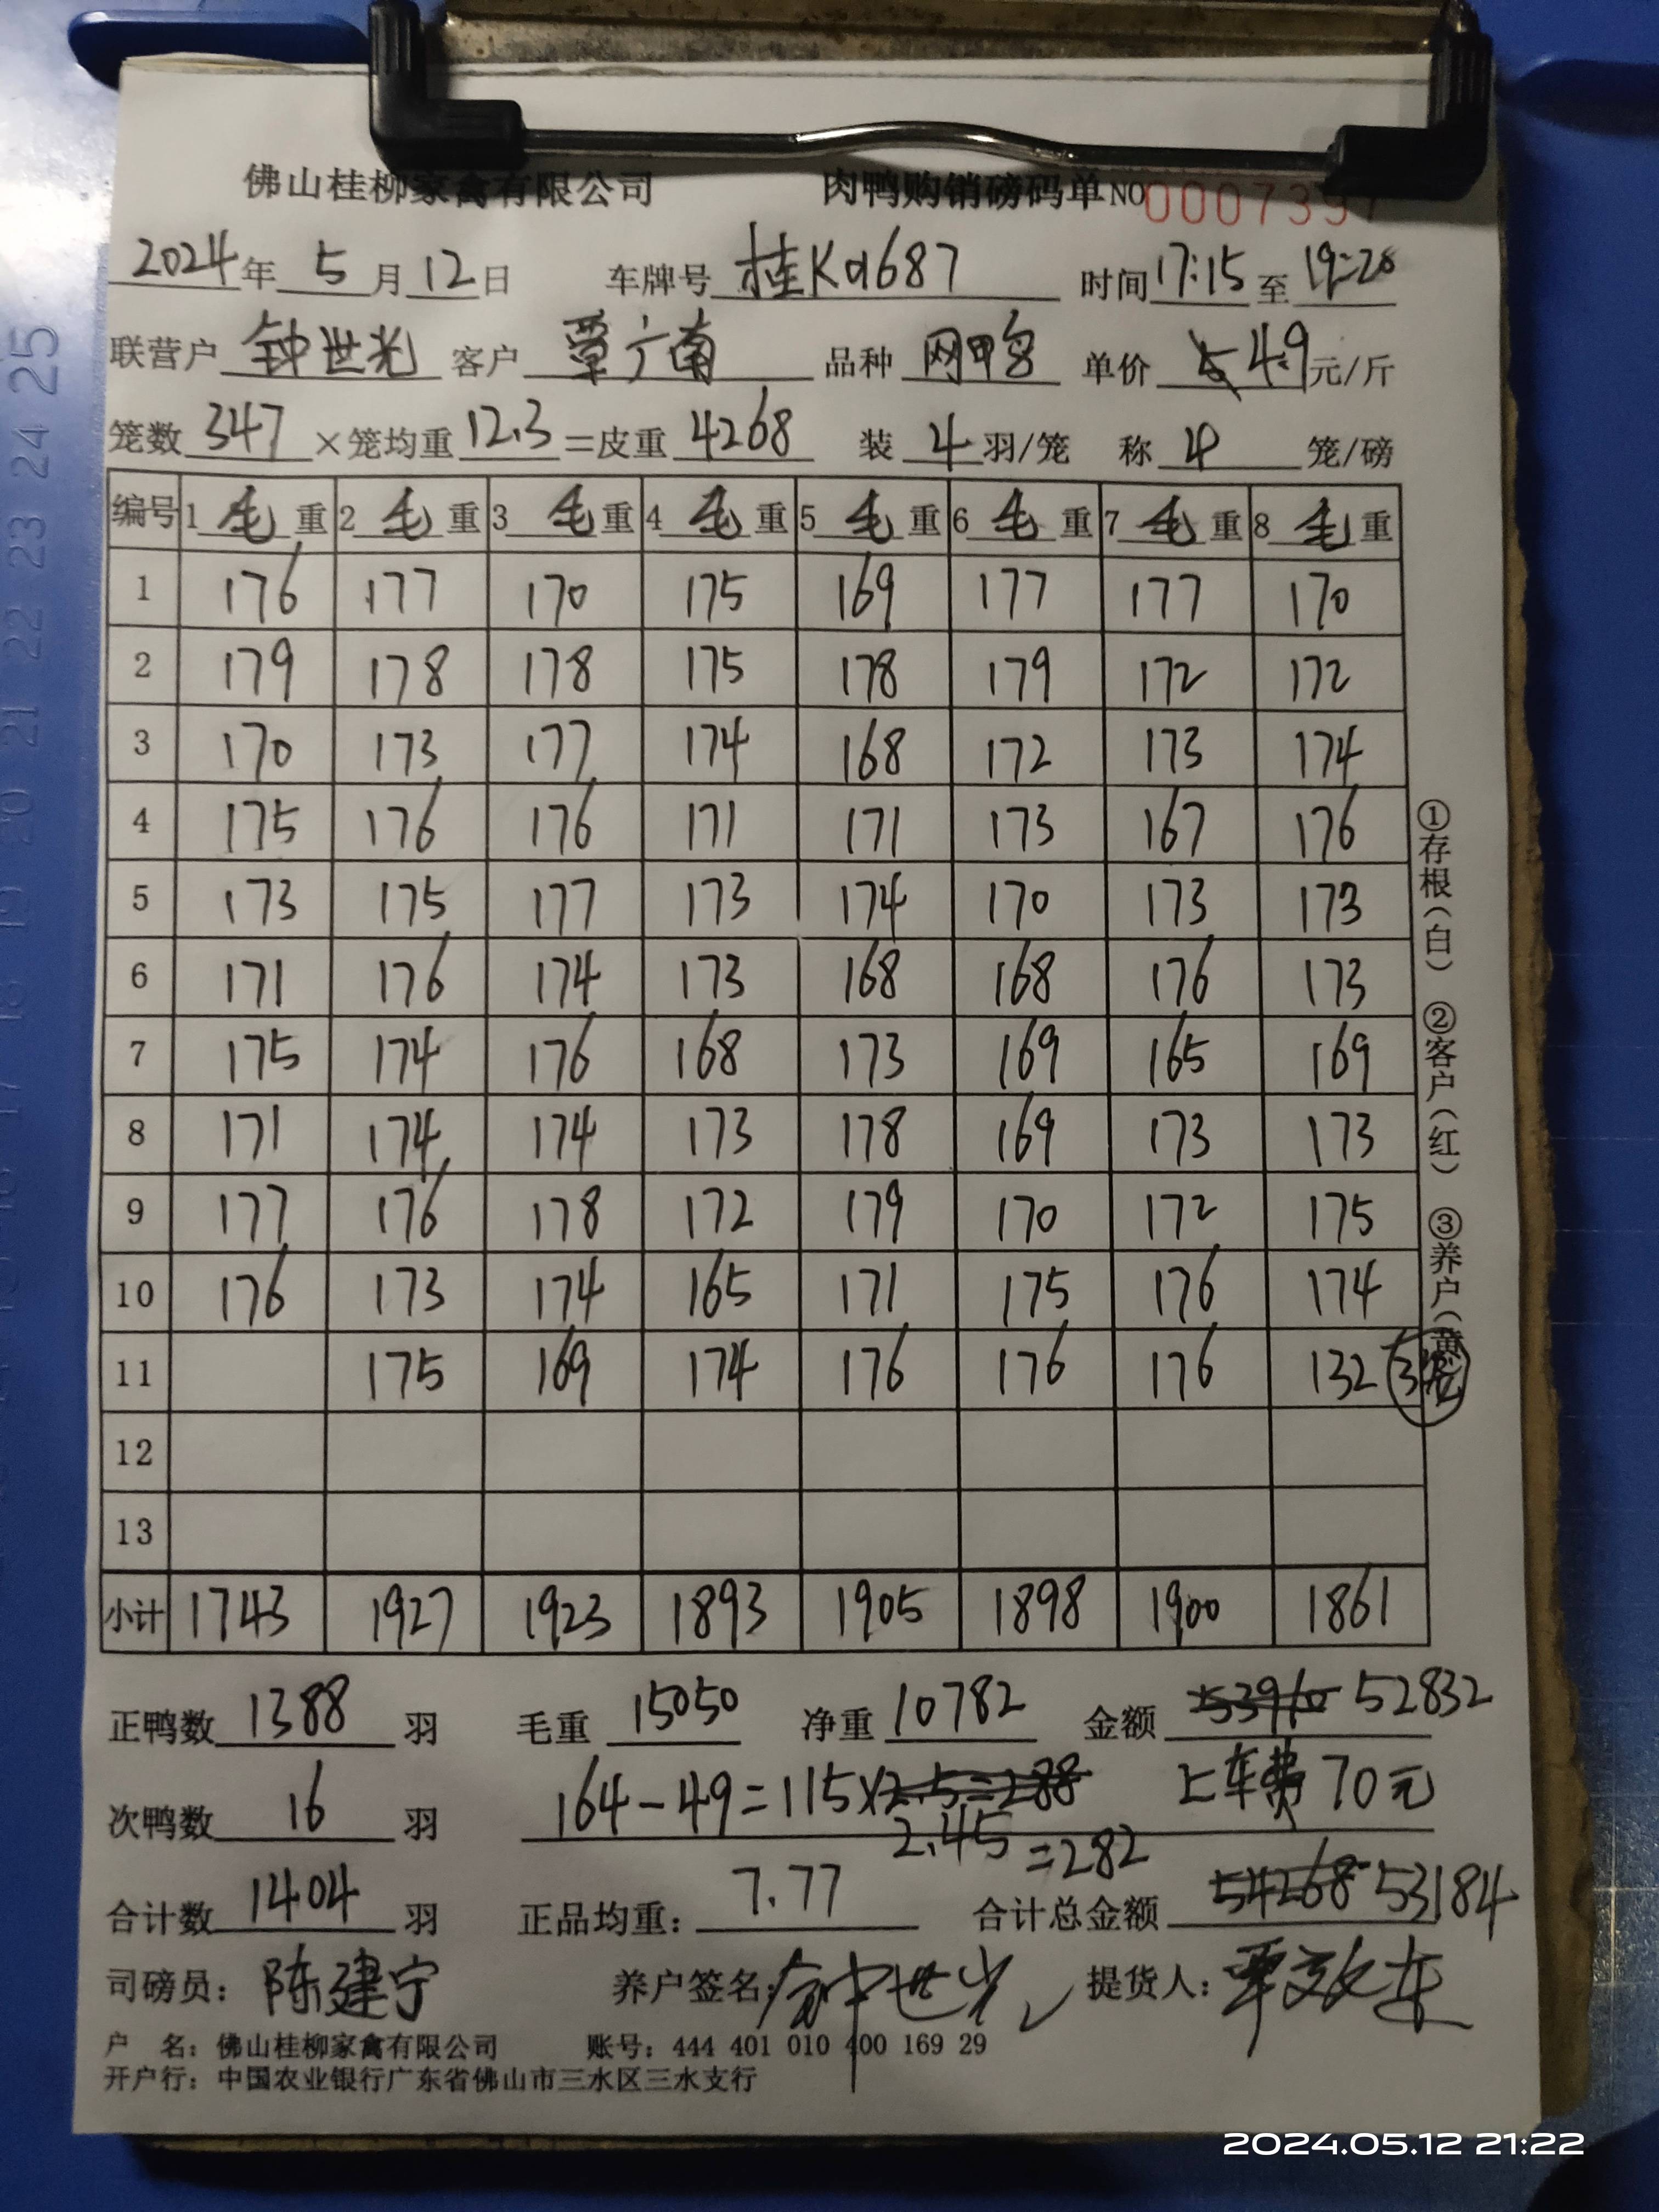 佛山桂柳家禽有限公司 肉鸭购销磅码单NO 0007397
2024年 5 月 12 日 车牌号 桂K01687 时间 17:15 至 19:20
联营户 钟世光 客户 覃广南 品种 网甲 单价 5 4.9 元/斤
笼数 347 ×笼均重 12.3 =皮重 4268 装 4 羽/笼 称 4 笼/磅
编号 1 毛 重 2 毛 重 3 毛 重 4 毛 重 5 毛 重 6 毛 重 7 毛 重 8 毛 重
1 176 177 170 175 169 177 177 170
2 179 178 178 175 178 179 172 172
3 170 173 177 174 168 172 173 174
4 175 176 176 171 171 173 167 176
5 173 175 177 173 174 170 173 173
6 171 176 174 173 168 168 176 173
7 175 174 176 168 173 169 165 169
8 171 174 174 173 178 169 173 173
9 177 176 178 172 179 170 172 175
10 176 173 174 165 171 175 176 174
11 175 169 174 176 176 176 132 3笼
12
13
小计 1743 1927 1923 1893 1905 1898 1900 1861
①存根(白) ②客户(红) ③养户(黄)
正鸭数 1388 羽 毛重 15050 净重 10782 金额 53910 52832
次鸭数 16 羽 164-49=115×2.5=288 上车费70元
2.45=282
合计数 1404 羽 正品均重: 7.77 合计总金额 54268 53184
司磅员: 陈建宁 养户签名: 钟世光 提货人: 覃
户 名: 佛山桂柳家禽有限公司 账号: 444 401 010 400 169 29
开户行: 中国农业银行广东省佛山市三水区三水支行
2024.05.12 21:22